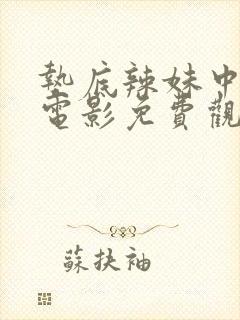 墊底辣妹中
電影免費觀
蘇扶袖